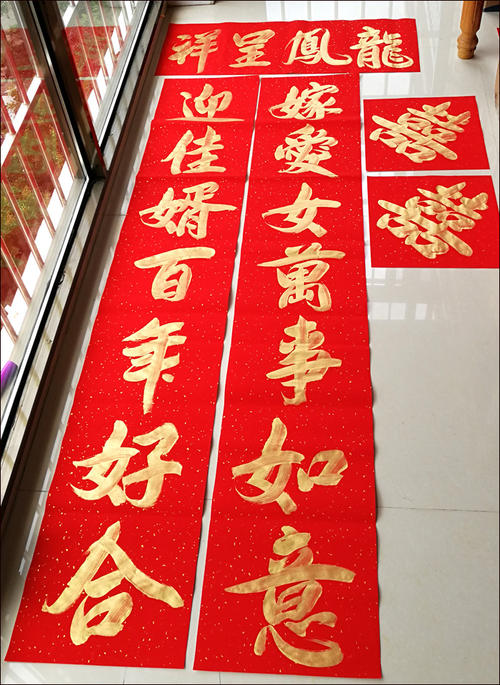 龍鳳呈祥
嫁愛女萬事如意
迎佳婿百年好合
囍
囍